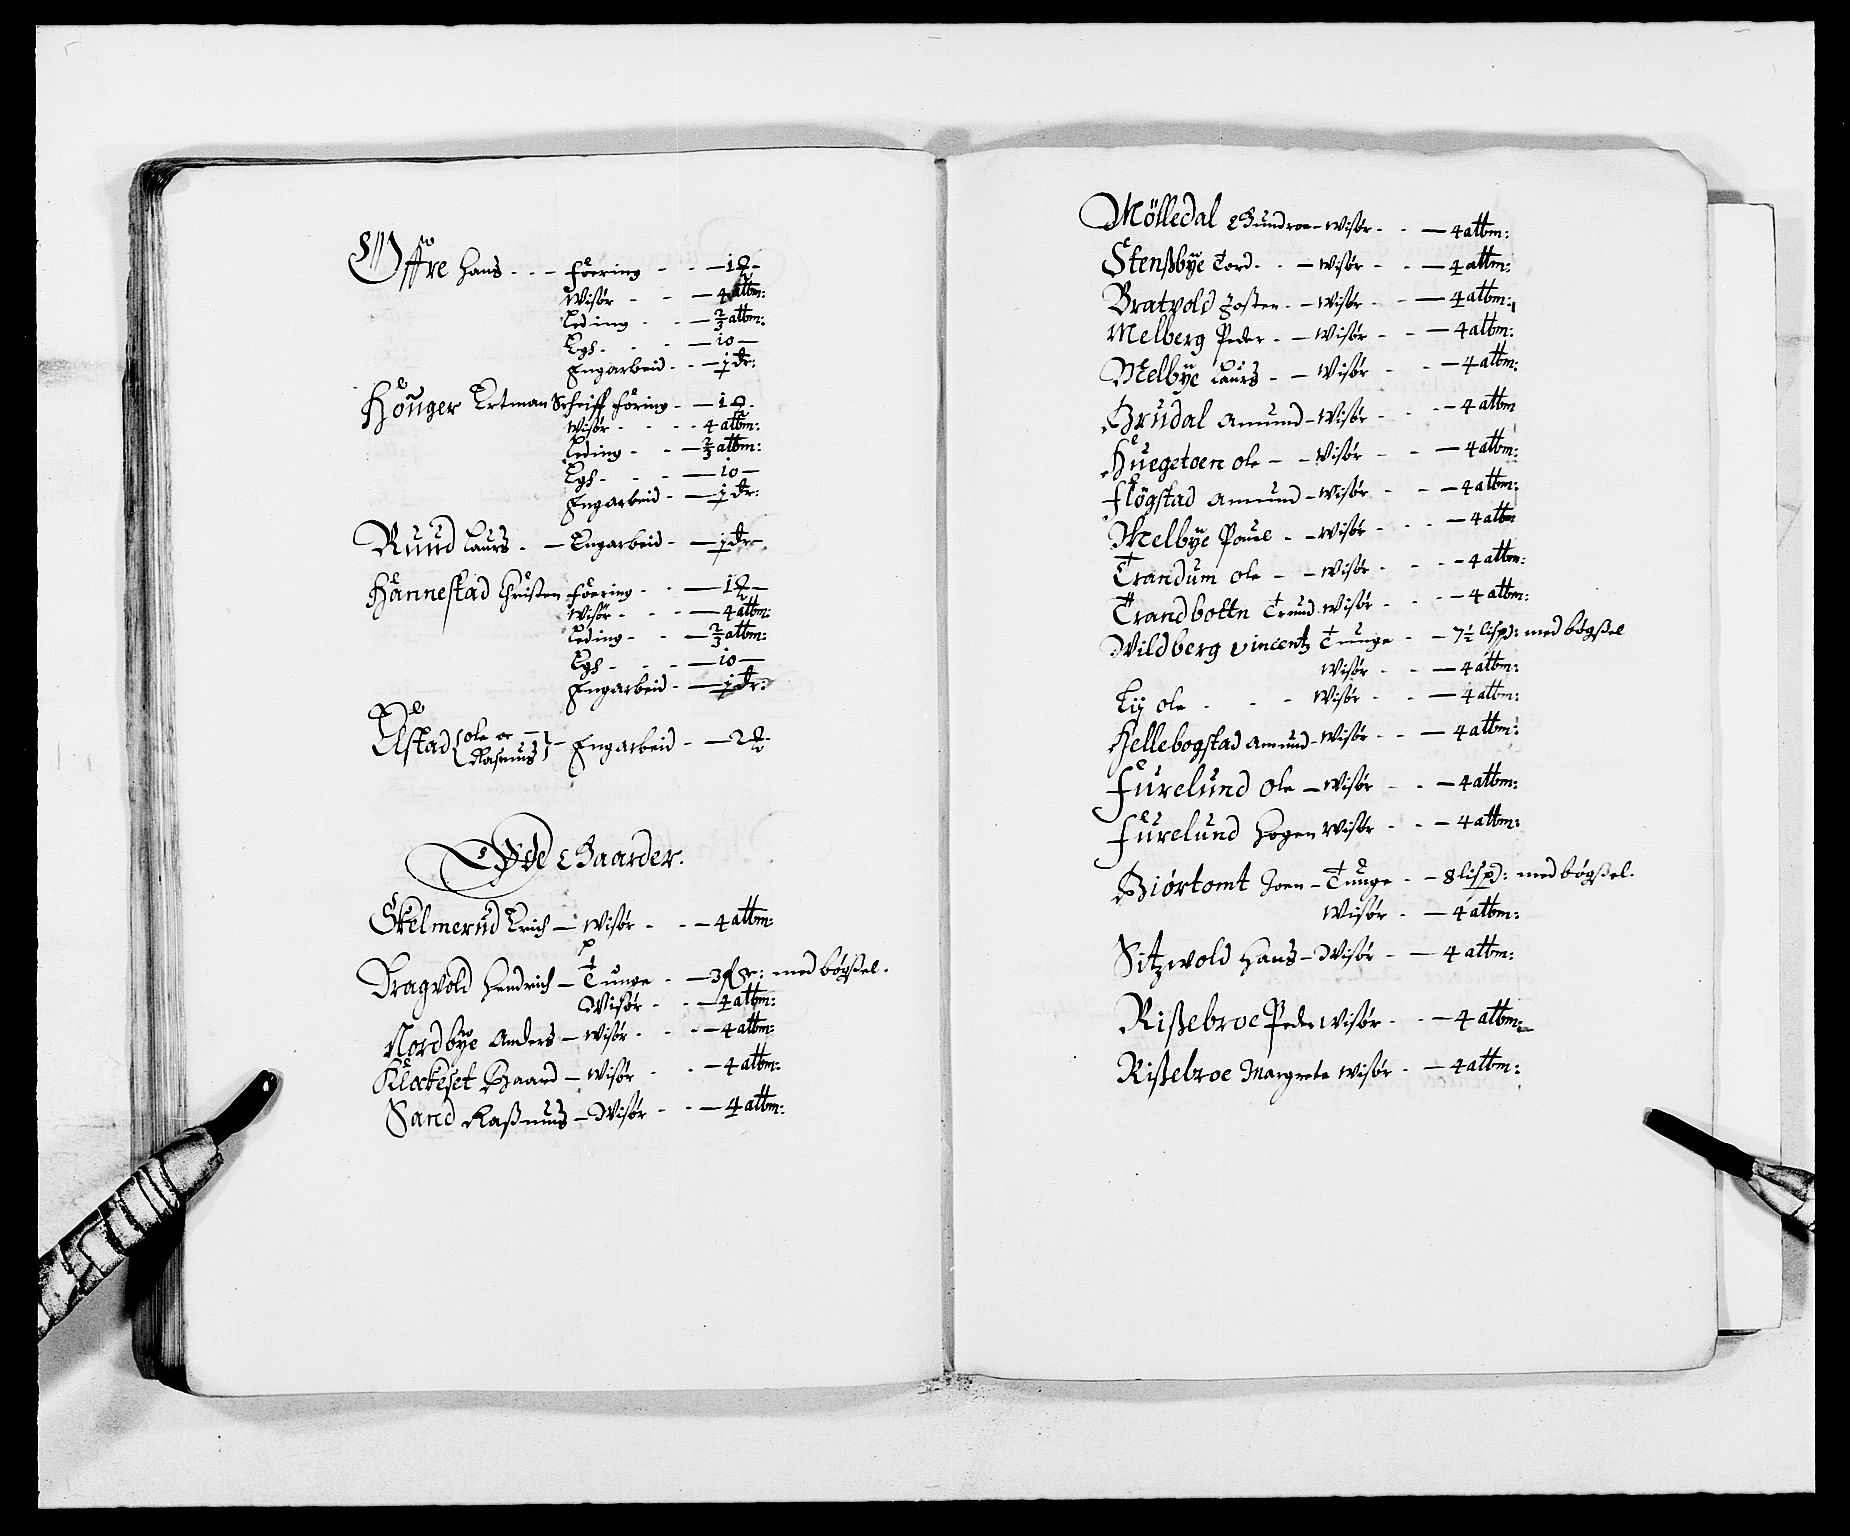 Offre Hans - - - Foering - - - 1 ₰
Wisør - - - 4 attm:
Leding - - - 2/3 attm:
Egh - - - 10 -
Engarbeid - - 1 dr:
Houger Ertman Schriff föring - - 1 ₰
Wisør - - - - 4 attm:
Leding - - - 2/3 attm:
Egh - - - 10 -
Engarbeid - - 1 dr:
Ruud Laurs - - Engarbeid - - 1 dr
Hannestad Christen Foering - - - 1 ₰
Wisør - - - 4 attm:
Leding - - - 2/3 attm:
Egh - - - 10 -
Engarbeid - - 1 dr:
Ulstad { Ole oc Rasmus } - Engarbeid - - 2 ₰
Øde Gaarder.
Skelmerud Erich - Wisør - - - 4 attm:
Dragvold Hendrich - Tunge - - 3 med bøgßel.
Wisør - - - 4 attm:
Nordbÿe Anders - Wisør - - - 4 attm:
Klockeset Baard - Wisør - - - 4 attm:
Sand Raßmus - Wisør - - - 4 attm:
Mölledal Gundroe - Wisør - - - 4 attm:
Stenßbÿe Tord - - - Wisør - - - 4 attm:
Bratvold Josten - - Wisør - - - 4 attm:
Melberg Peder - - Wisør - - - 4 attm:
Melbÿe Laurs - - Wisør - - - 4 attm:
Brudal Amund - Wisør - - - 4 attm
Huegetoen Ole - - Wisør - - - 4 attm:
Flögstad Amund - Wisør - - - 4 attm:
Melbÿe Pouel - - Wisør - - - 4 attm
Trandum Ole - - Wisør - - - 4 attm:
Trandbottn Trund Wisør - - - 4 attm:
Wildberg Vincentz Tunge - - 7½ lisp: med bøgßel
Wisør - - - 4 attm:
Lÿ Ole - - - Wisør - - - 4 attm:
Hellebogstad Amund - Wisør - - - 4 attm:
Furelund Ole - Wisør - - - 4 attm:
Furelund Hogen Wisør - - - 4 attm:
Biörtomt Joen - Tunge - - 8 lisp: med bøgßel.
Wisør - - - 4 attm:
Sitzwold Hans - Wisør - - 4 attm:
Rißebroe Peder Wisør - - - 4 attm:
Rißebroe Margrete Wisør - - 4 attm: